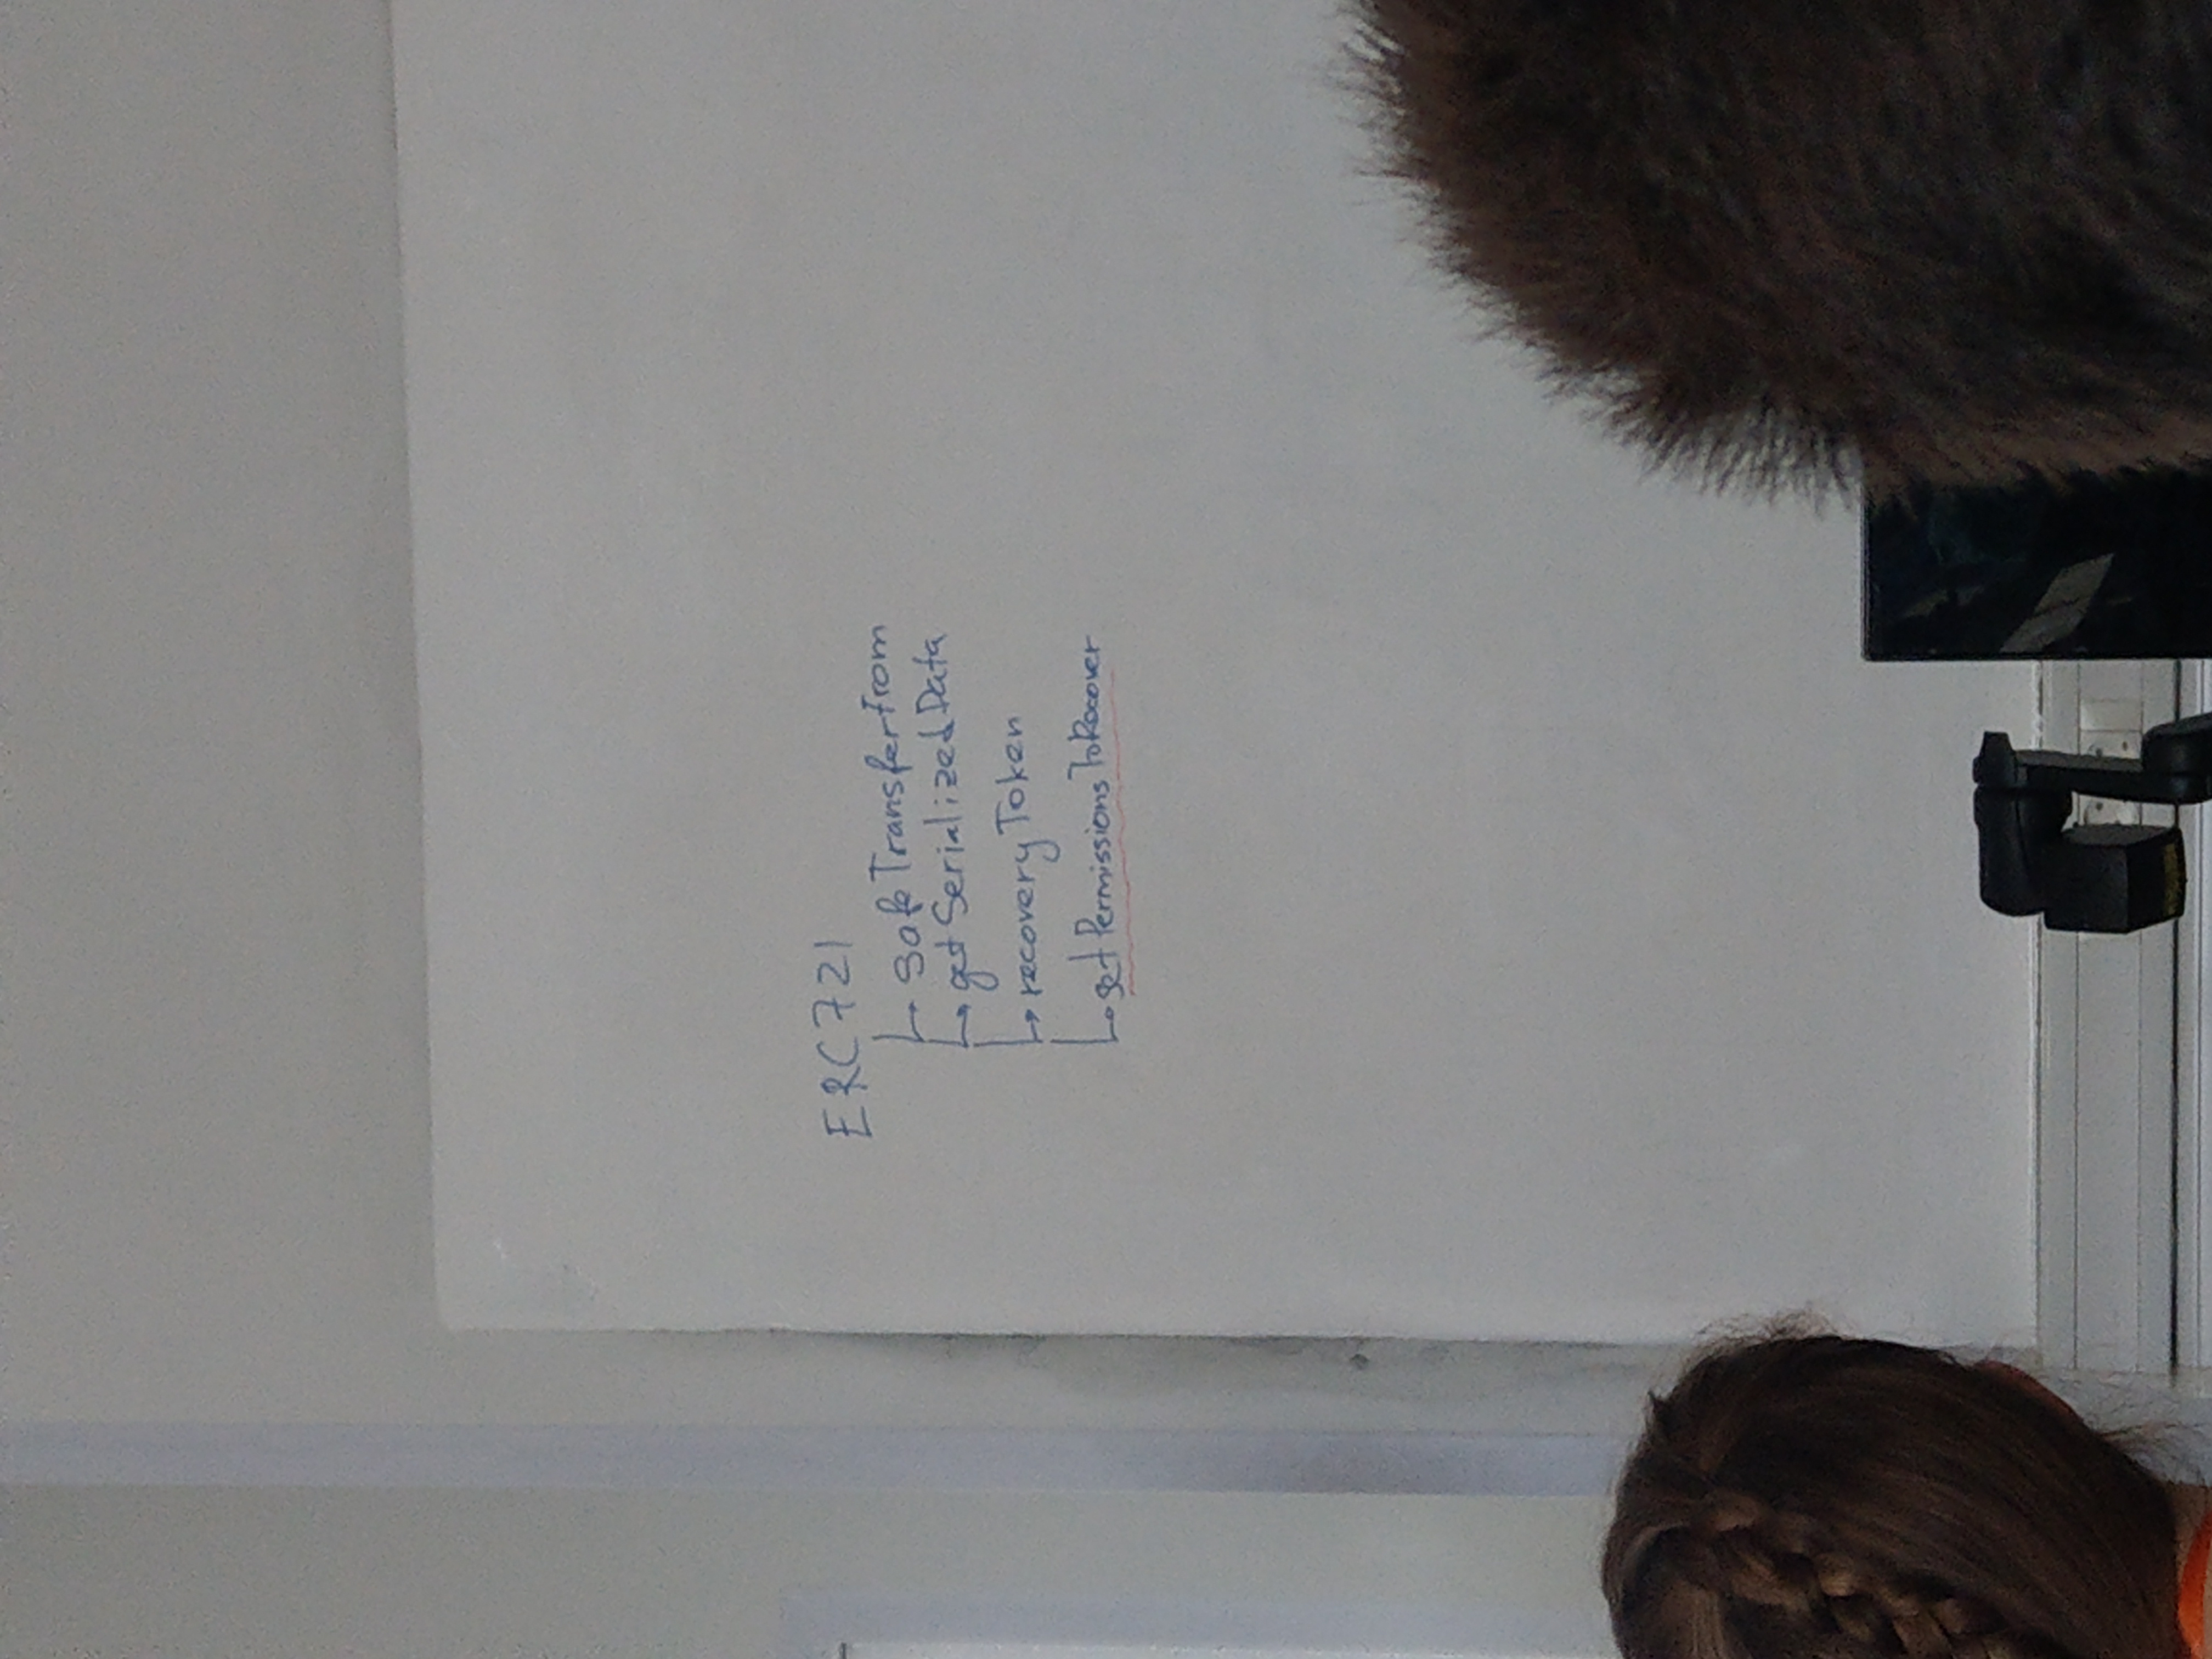 ERC721
↳ safeTransferFrom
↳ getSerializedData
↳ recoveryToken
↳ setPermissionsToRecover